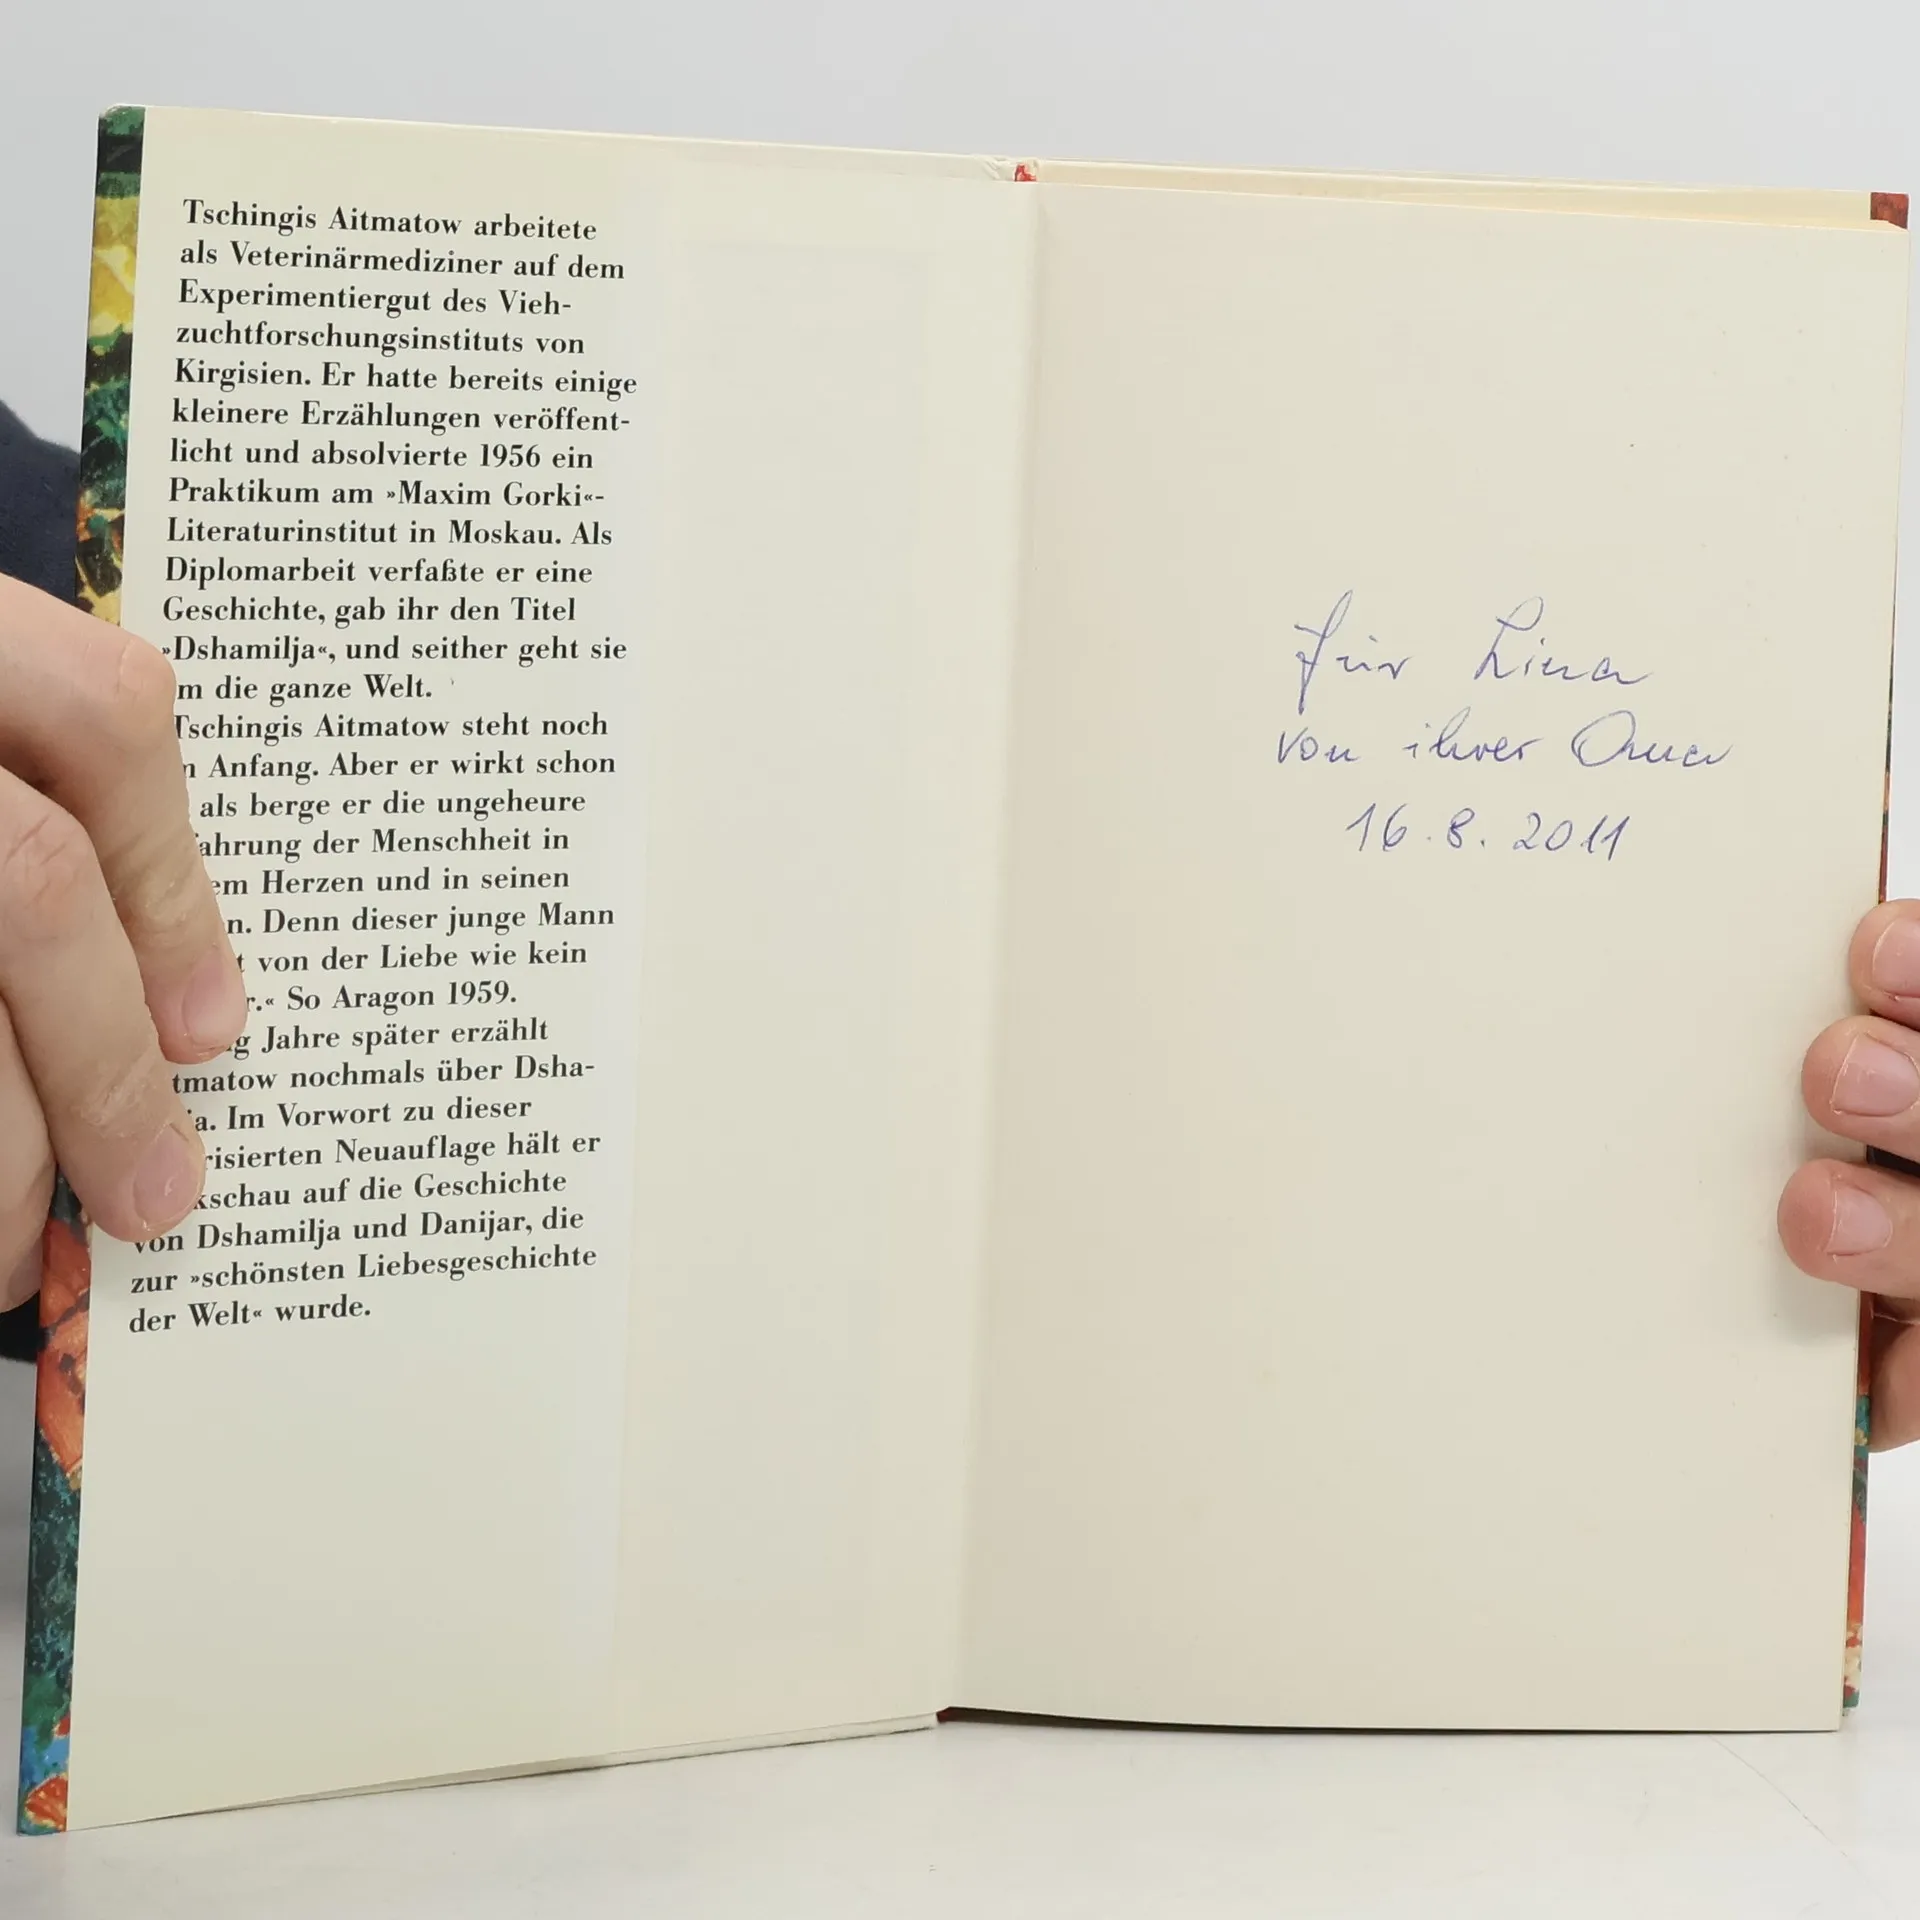 Tschingis Aitmatow arbeitete
als Veterinärmediziner auf dem
Experimentiergut des Vieh-
zuchtforschungsinstituts von
Kirgisien. Er hatte bereits einige
kleinere Erzählungen veröffent-
licht und absolvierte 1956 ein
Praktikum am »Maxim Gorki«-
Literaturinstitut in Moskau. Als
Diplomarbeit verfaßte er eine
Geschichte, gab ihr den Titel
»Dshamilja«, und seither geht sie
m die ganze Welt.
Tschingis Aitmatow steht noch
Anfang. Aber er wirkt schon
als berge er die ungeheure
ahrung der Menschheit in
em Herzen und in seinen
n. Denn dieser junge Mann
t von der Liebe wie kein
r.« So Aragon 1959.
g Jahre später erzählt
tmatow nochmals über Dsha-
a. Im Vorwort zu dieser
risierten Neuauflage hält er
kschau auf die Geschichte
von Dshamilja und Danijar, die
zur »schönsten Liebesgeschichte
der Welt« wurde.
für Lina
von ihrer Oma
16.8.2011